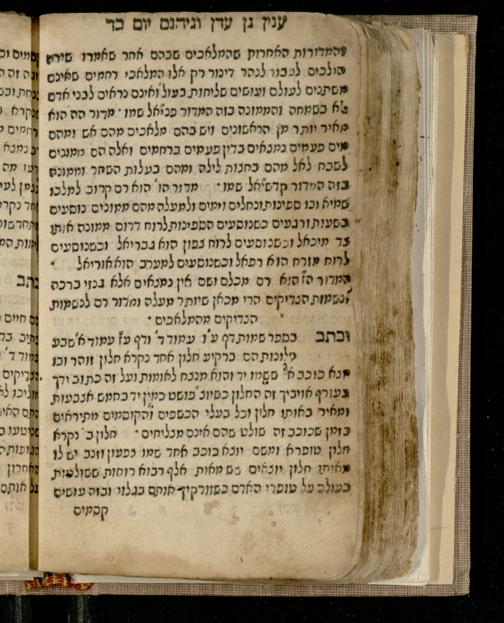 ענין גן עדן וגיהנם יום כד
והמדורות האחרות שהמלאכים שבהם אחר שאמרו שירה
הולכים לטבול לנהר דינור רק אלו המלאכי רחמים שאינם
משתנים לעולם ועושים שליחות בעול׳ ואינם נראים לבני אדם
לא בשמחה והממונה בזה המדור פניאל שמו׳ מדור הה הוא
מאיר יותר מן הראשונים ויש בהם מלאכים מהם אש ומהם
מים פעמים נמצאים בדין פעמים ברחמים ואלה הם ממונים
לשבח לאל מהם בחצות לילה ומהם בעלות השחר וממונה
בזה המדור קדשיאל שמו׳ מדור הו׳ הוא רם קרוב למלכו
שמיא ובו ספינות ונחלים וימים ולמעלה מהם ממונים נוסעים
בשעות ורגעים כשנוסעים הספינות לרוח דרום ממונה אותו
צד מיכאל וכשנוסעים לרוח צפון הוא גבריאל וכשנוסעים
לרוח מזרח הוא רפאל וכשנוסעים למערב הוא אוריאל
המדור הז׳ הוא רם מכלם ושם אין נמצאים אלא גנזי ברכה
ונשמות הצדיקים הרי מכאן שיותר מעלה ומדור רם לנשמות
הצדיקים מהמלאכים׃
וכתב בספר שמות דף ע״ו עמוד ד׳ ודף ע״ז עמוד א׳ שבע
חלונות הם ברקיע חלון אחד נקרא חלון זוהר ובו
יוצא כוכב א׳ ששמו יד והוא מנצח לאומות ועל זה כתוב ידך
בעורף אויביך זה החלון כשיוצ׳ פושט כמין יד בחמש אצבעות
ומאיר באותו חלון וכל בעלי הכשפים והקוסמים מתיראים
בזמן שכוכב זה שולט שהם אינם מצליחים׃ חלון ב׳ נקרא
חלון טופרא ומשם יוצא כוכב אחד שמו צפעון וזנב יש לו
מאותו חלון יוצאים שש מאות אלף רבוא רוחות ששולטות
בעולם על טופרי האדם כשזורקין אותם בגלוי ובזה עושים
קסמים